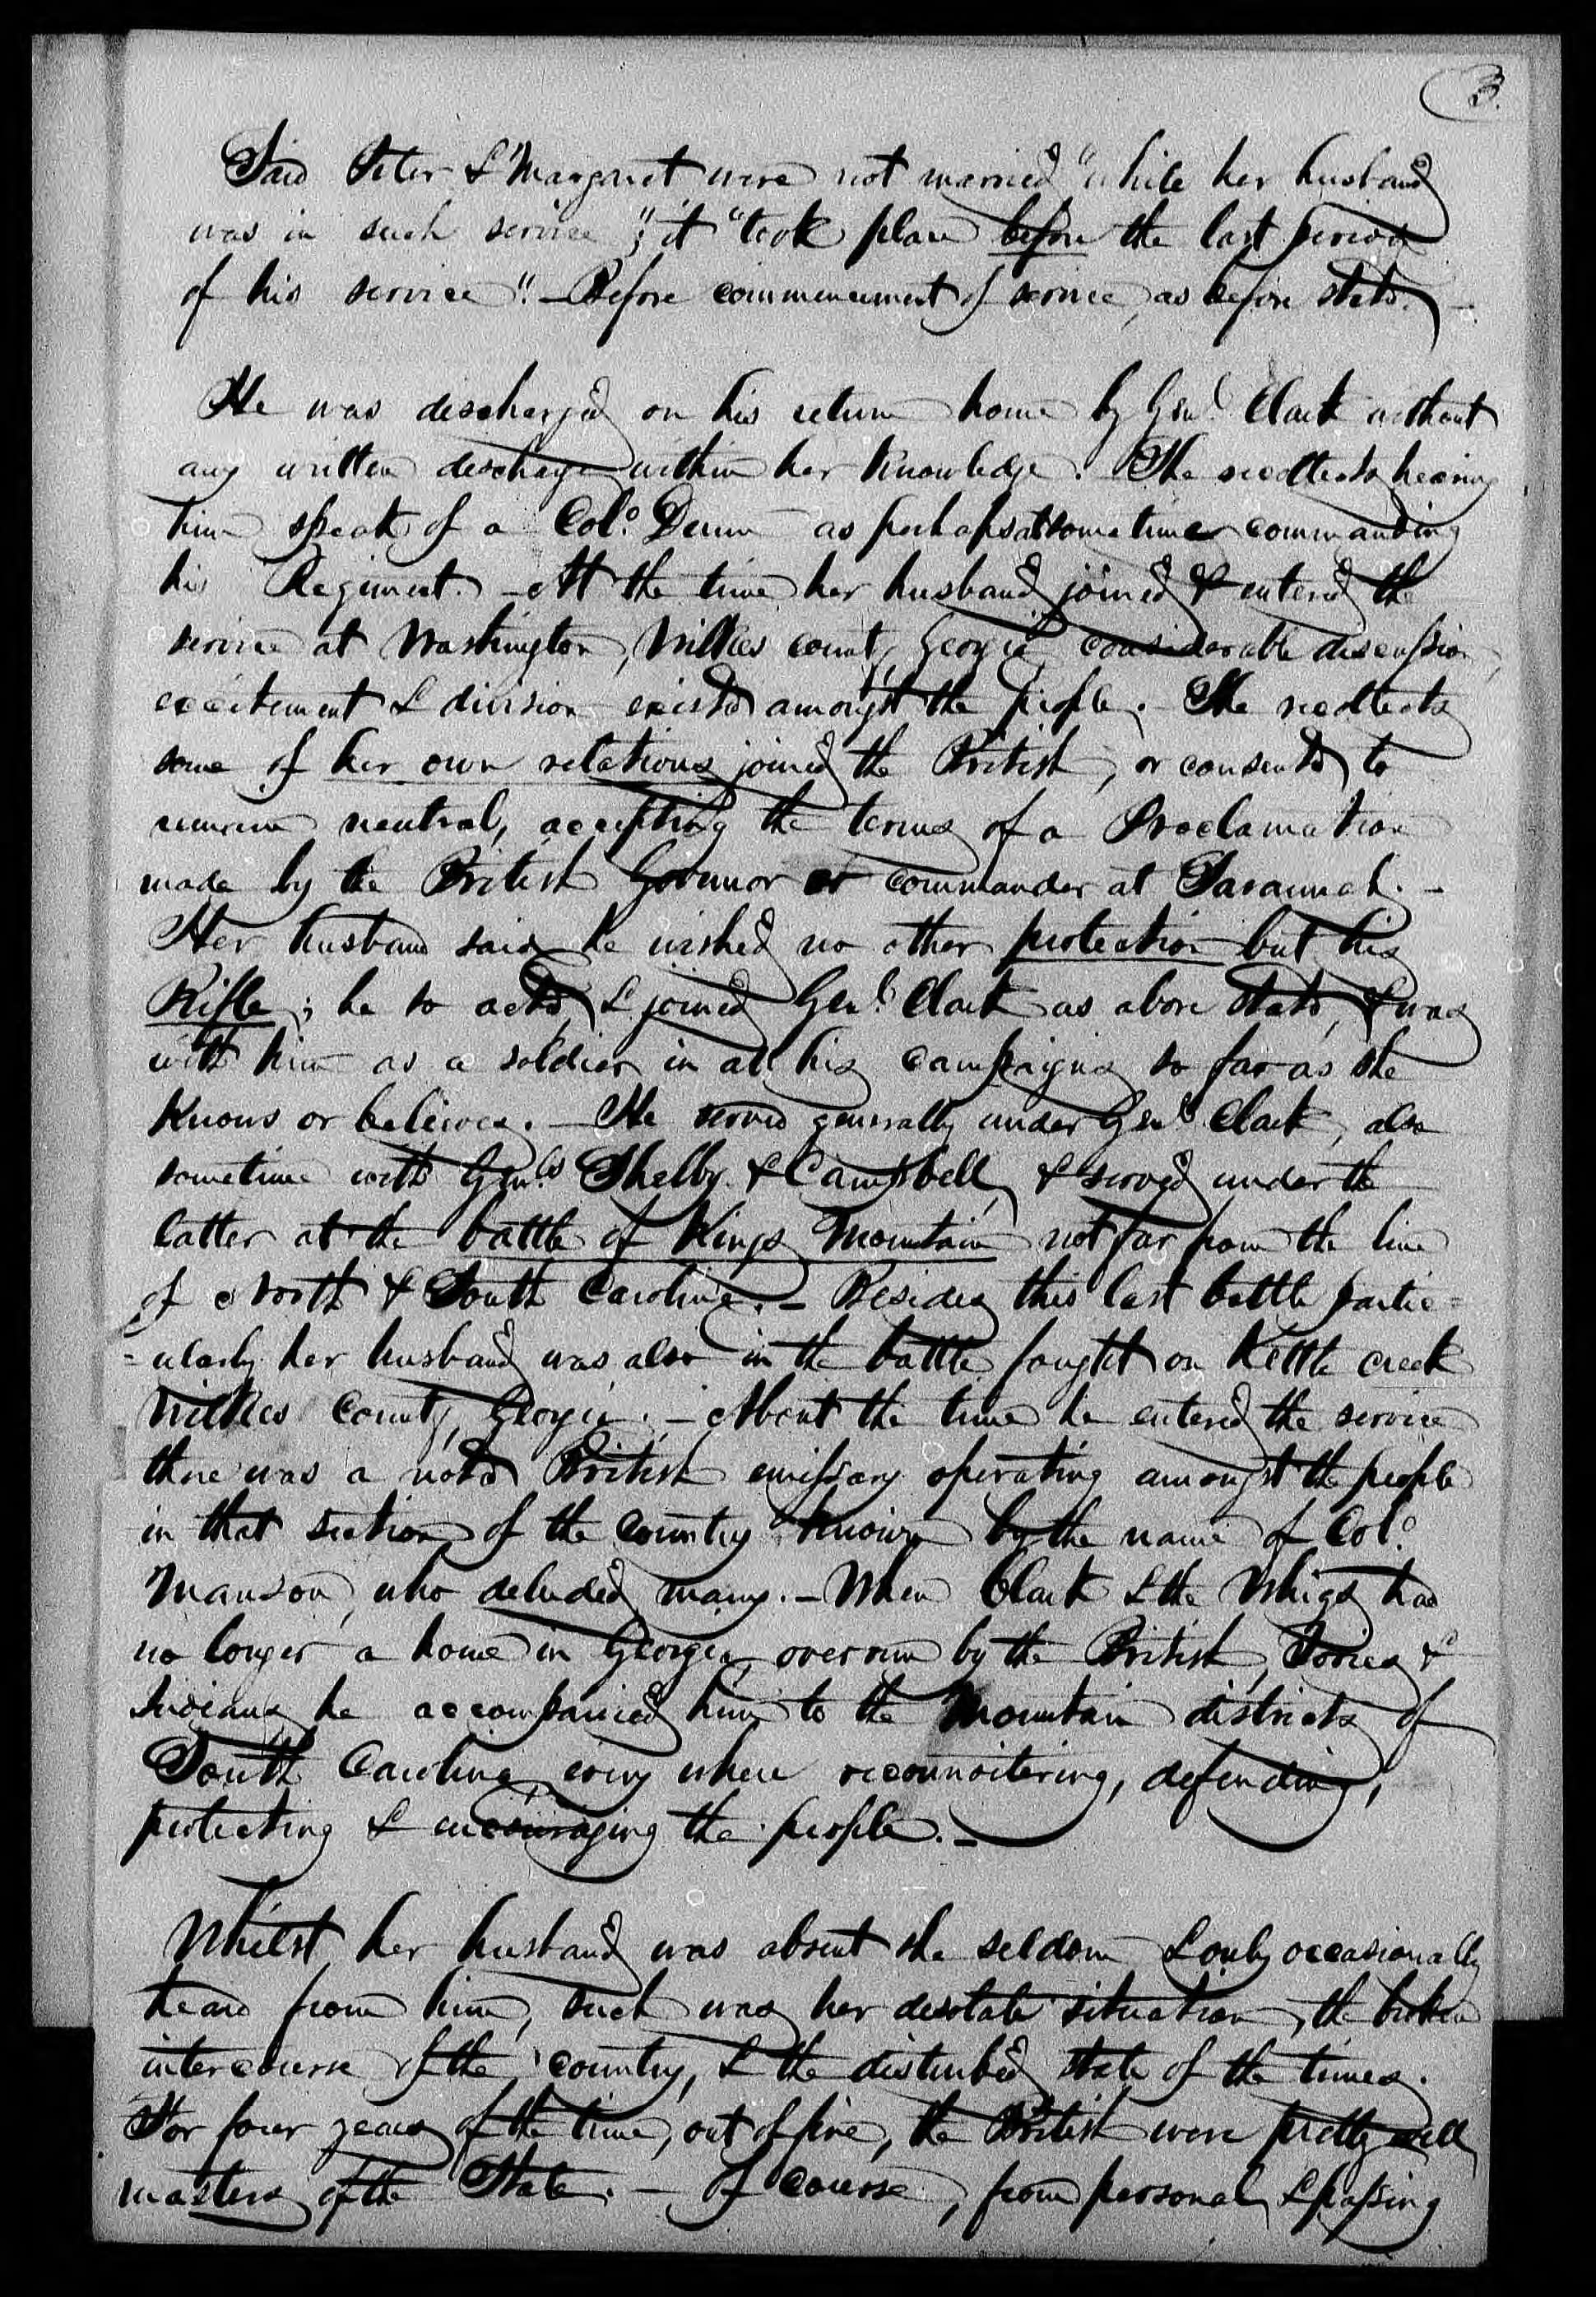 3.
Said Peter & Margaret were not married "while her husband
was in such service"; it "took place before the last period
of his service". - Before commencement of service, as before stated. -
He was discharged on his return home by Genl. Clark without
any written discharge within her knowledge. She recollects hearing
him speak of a Colo. Dunn as perhaps at some time commanding
his Regiment. - At the time her husband joined & entered the
service at Washington, Wilkes county, Georgia, considerable discussion,
excitement & division existed amongst the people. She recollects
some of her own relations joined the British, or consented to
remain neutral, accepting the terms of a Proclamation
made by the British Governor or commander at Savannah. -
Her husband said he wished no other protection but his
Rifle; he so acted, & joined Genl. Clark as above stated, & was
with him as a soldier in all his campaigns so far as she
knows or believes. - He served generally under Genl. Clark, also
sometime with Genls. Shelby & Campbell, & served under the
latter at the battle of Kings Mountain not far from the line
of North & South Carolina. - Besides this last battle partic=
=ularly her husband was also in the battle fought on Kettle creek
Wilkes County, Georgia. - About the time he entered the service
there was a noted British emissary operating amongst the people
in that section of the country known by the name of Colo.
Manson, who deluded many. - When Clark & the Whigs had
no longer a home in Georgia, overrun by the British, Tories &
Indians he accompanied him to the Mountain districts of
South Carolina every where reconnoitering, defending,
protecting & encouraging the people. -
Whilst her husband was absent she seldom & only occasionally
heard from him, such was her desolate situation, the broken
intercourse of the country, & the disturbed state of the times.
For four years of the time, out of five, the British were pretty well
masters of the State. - Of course, from personal & passing